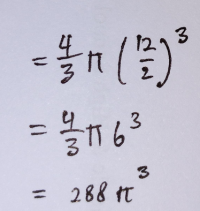 = 4/3 π (12/2)³
= 4/3 π 6³
= 288 π³